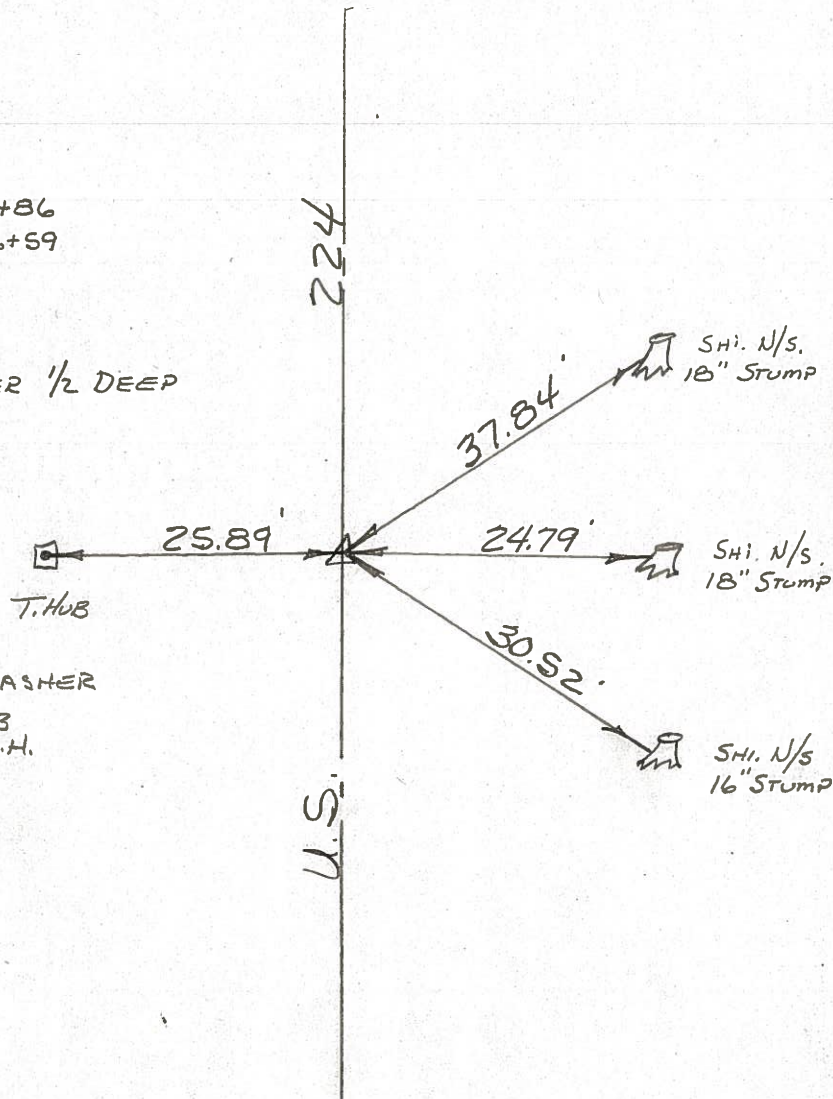 +86
+59
224
ER 1/2 DEEP
SHI. N/S.
18" STUMP
37.84'
25.89'
24.79'
SHI. N/S.
18" STUMP
T. HUB
30.52'
ASHER
3
.H.
SHI. N/S
16" STUMP
U.S.